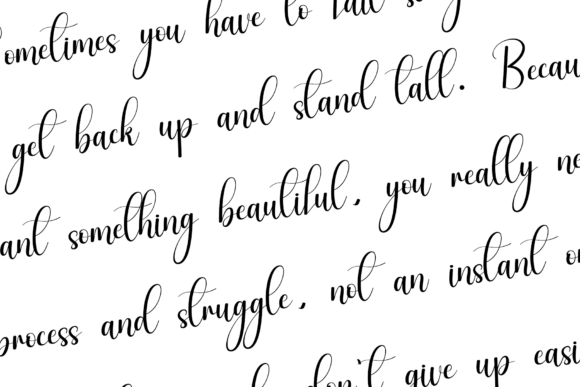 ometimes you have to fall so
get back up and stand tall. Becau
ant something beautiful, you really ne
process and struggle, not an instant o
don't give up easi